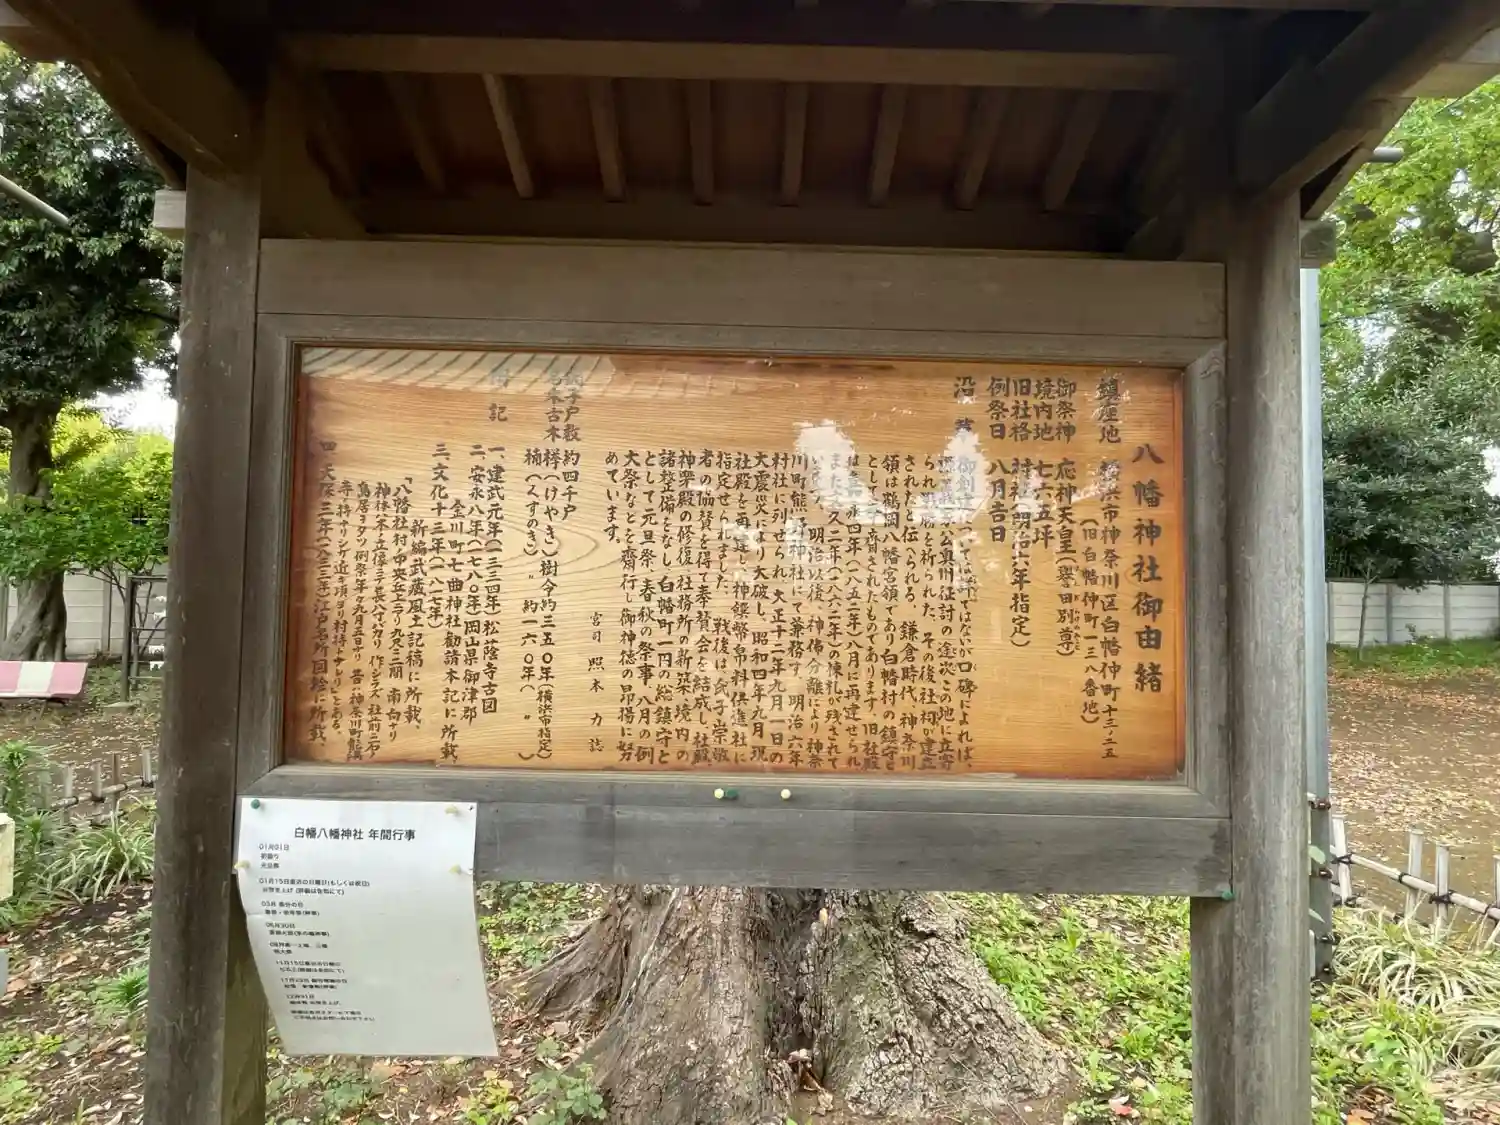 八幡神社御由緒
鎮座地 横浜市神奈川区白幡仲町十三ノ二五
(旧白幡仲町一三八番地)
御祭神 応神天皇(誉田別尊)
境内地 七六五坪
旧社格 村社(明治六年指定)
例祭日 八月吉日
沿革
御創建については詳ではないが口碑によれば、
公奥州征討の途次この地に立寄
られ戦勝を祈られた。その後社祠が建立
されたと伝へられる。鎌倉時代、神奈川
領は鶴岡八幡宮領であり白幡村の鎮守
として奉齋されたものであります。旧社殿
は嘉永四年(一八五二年)八月に再建せられ
また文久二年(一八六二年)の棟札が残されて
いる。明治以後、神佛分離により神奈
川町熊野神社にて兼務す。明治六年
村社に列せられ、大正十二年九月一日の
大震災により大破し、昭和四年九月現
社殿を再建し、神饌幣帛料供進社に
指定せられました。戦後は氏子崇敬
者の協賛を得て奉賛会を結成し、社殿
神楽殿の修復、社務所の新築、境内の
諸整備をなし、白幡町一円の総鎮守と
として元旦祭、春秋の祭事、八月の例
大祭などを齋行し御神徳の昂揚に努
めています。
宮司 照本 力 誌
氏子戸数 約四千戸
名木古木 欅(けやき)樹令約三五〇年(横浜市指定)
楠(くすのき) 〃 約一六〇年( 〃 )
附記
一、建武元年(一三三四年)松蔭寺古図
二、安永八年(一七八〇年)岡山県御津郡
金川町七曲神社勧請本記に所載、
三、文化十三年(一八一七年)
新編武蔵風土記稿に所載、
「八幡社村ノ中央丘上ニアリ九尺ニ三間 南向ナリ
神体木ノ立像ニテ長八寸バカリ 作シラズ社前ニ石ノ
鳥居ヲタツ例祭年々九月五日ナリ 昔ハ神奈川町能満
寺持ナリシガ近キ頃ヨリ村持トナレリ」とある。
四、天保三年(一八三二年)江戸名所図絵に所載、
白幡八幡神社 年間行事
01月01日
初詣り
元旦祭
01月15日直近の日曜日(もしくは祝日)
03月 春分の日
06月30日
12月31日